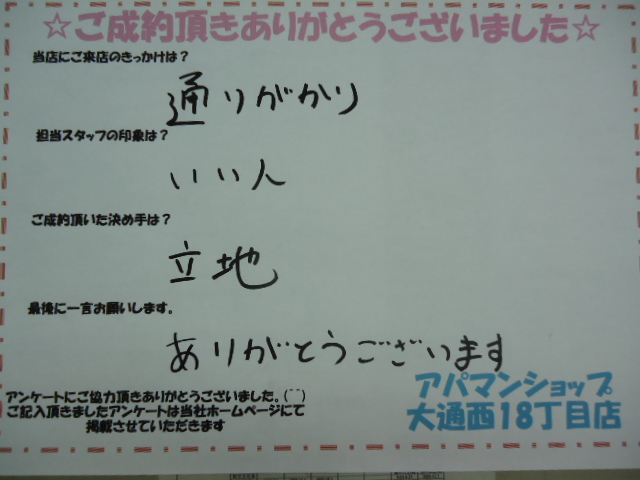 ☆ご成約頂きありがとうございました☆
当店にご来店のきっかけは？
通りがかり
担当スタッフの印象は？
いい人
ご成約頂いた決め手は？
立地
最後に一言お願いします。
ありがとうございます
アンケートにご協力頂きありがとうございました。(^^)
ご記入頂きましたアンケートは当社ホームページにて
掲載させていただきます
アパマンショップ
大通西18丁目店